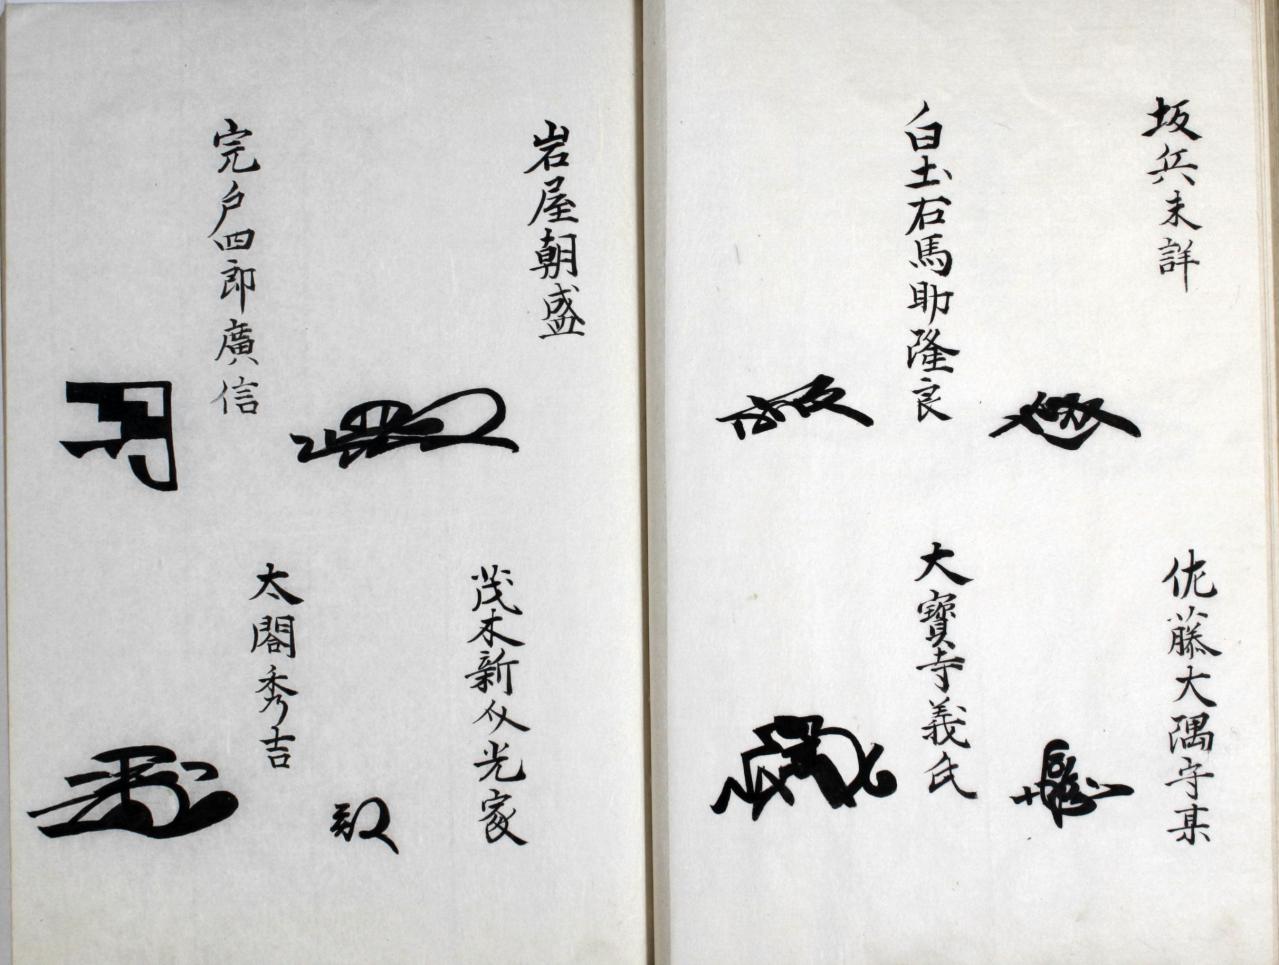 坂兵未詳
佐藤大隅守某
白土右馬助隆良
大寶寺義氏
岩屋朝盛
茂木新公光家
宍戸四郎廣信
太閤秀吉